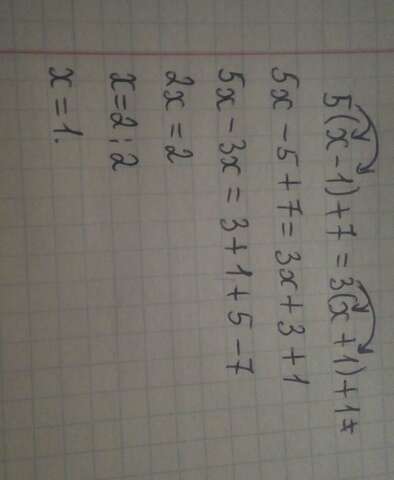 5(x-1)+7=3(x+1)+1
5x-5+7=3x+3+1
5x-3x=3+1+5-7
2x=2
x=2:2
x=1.